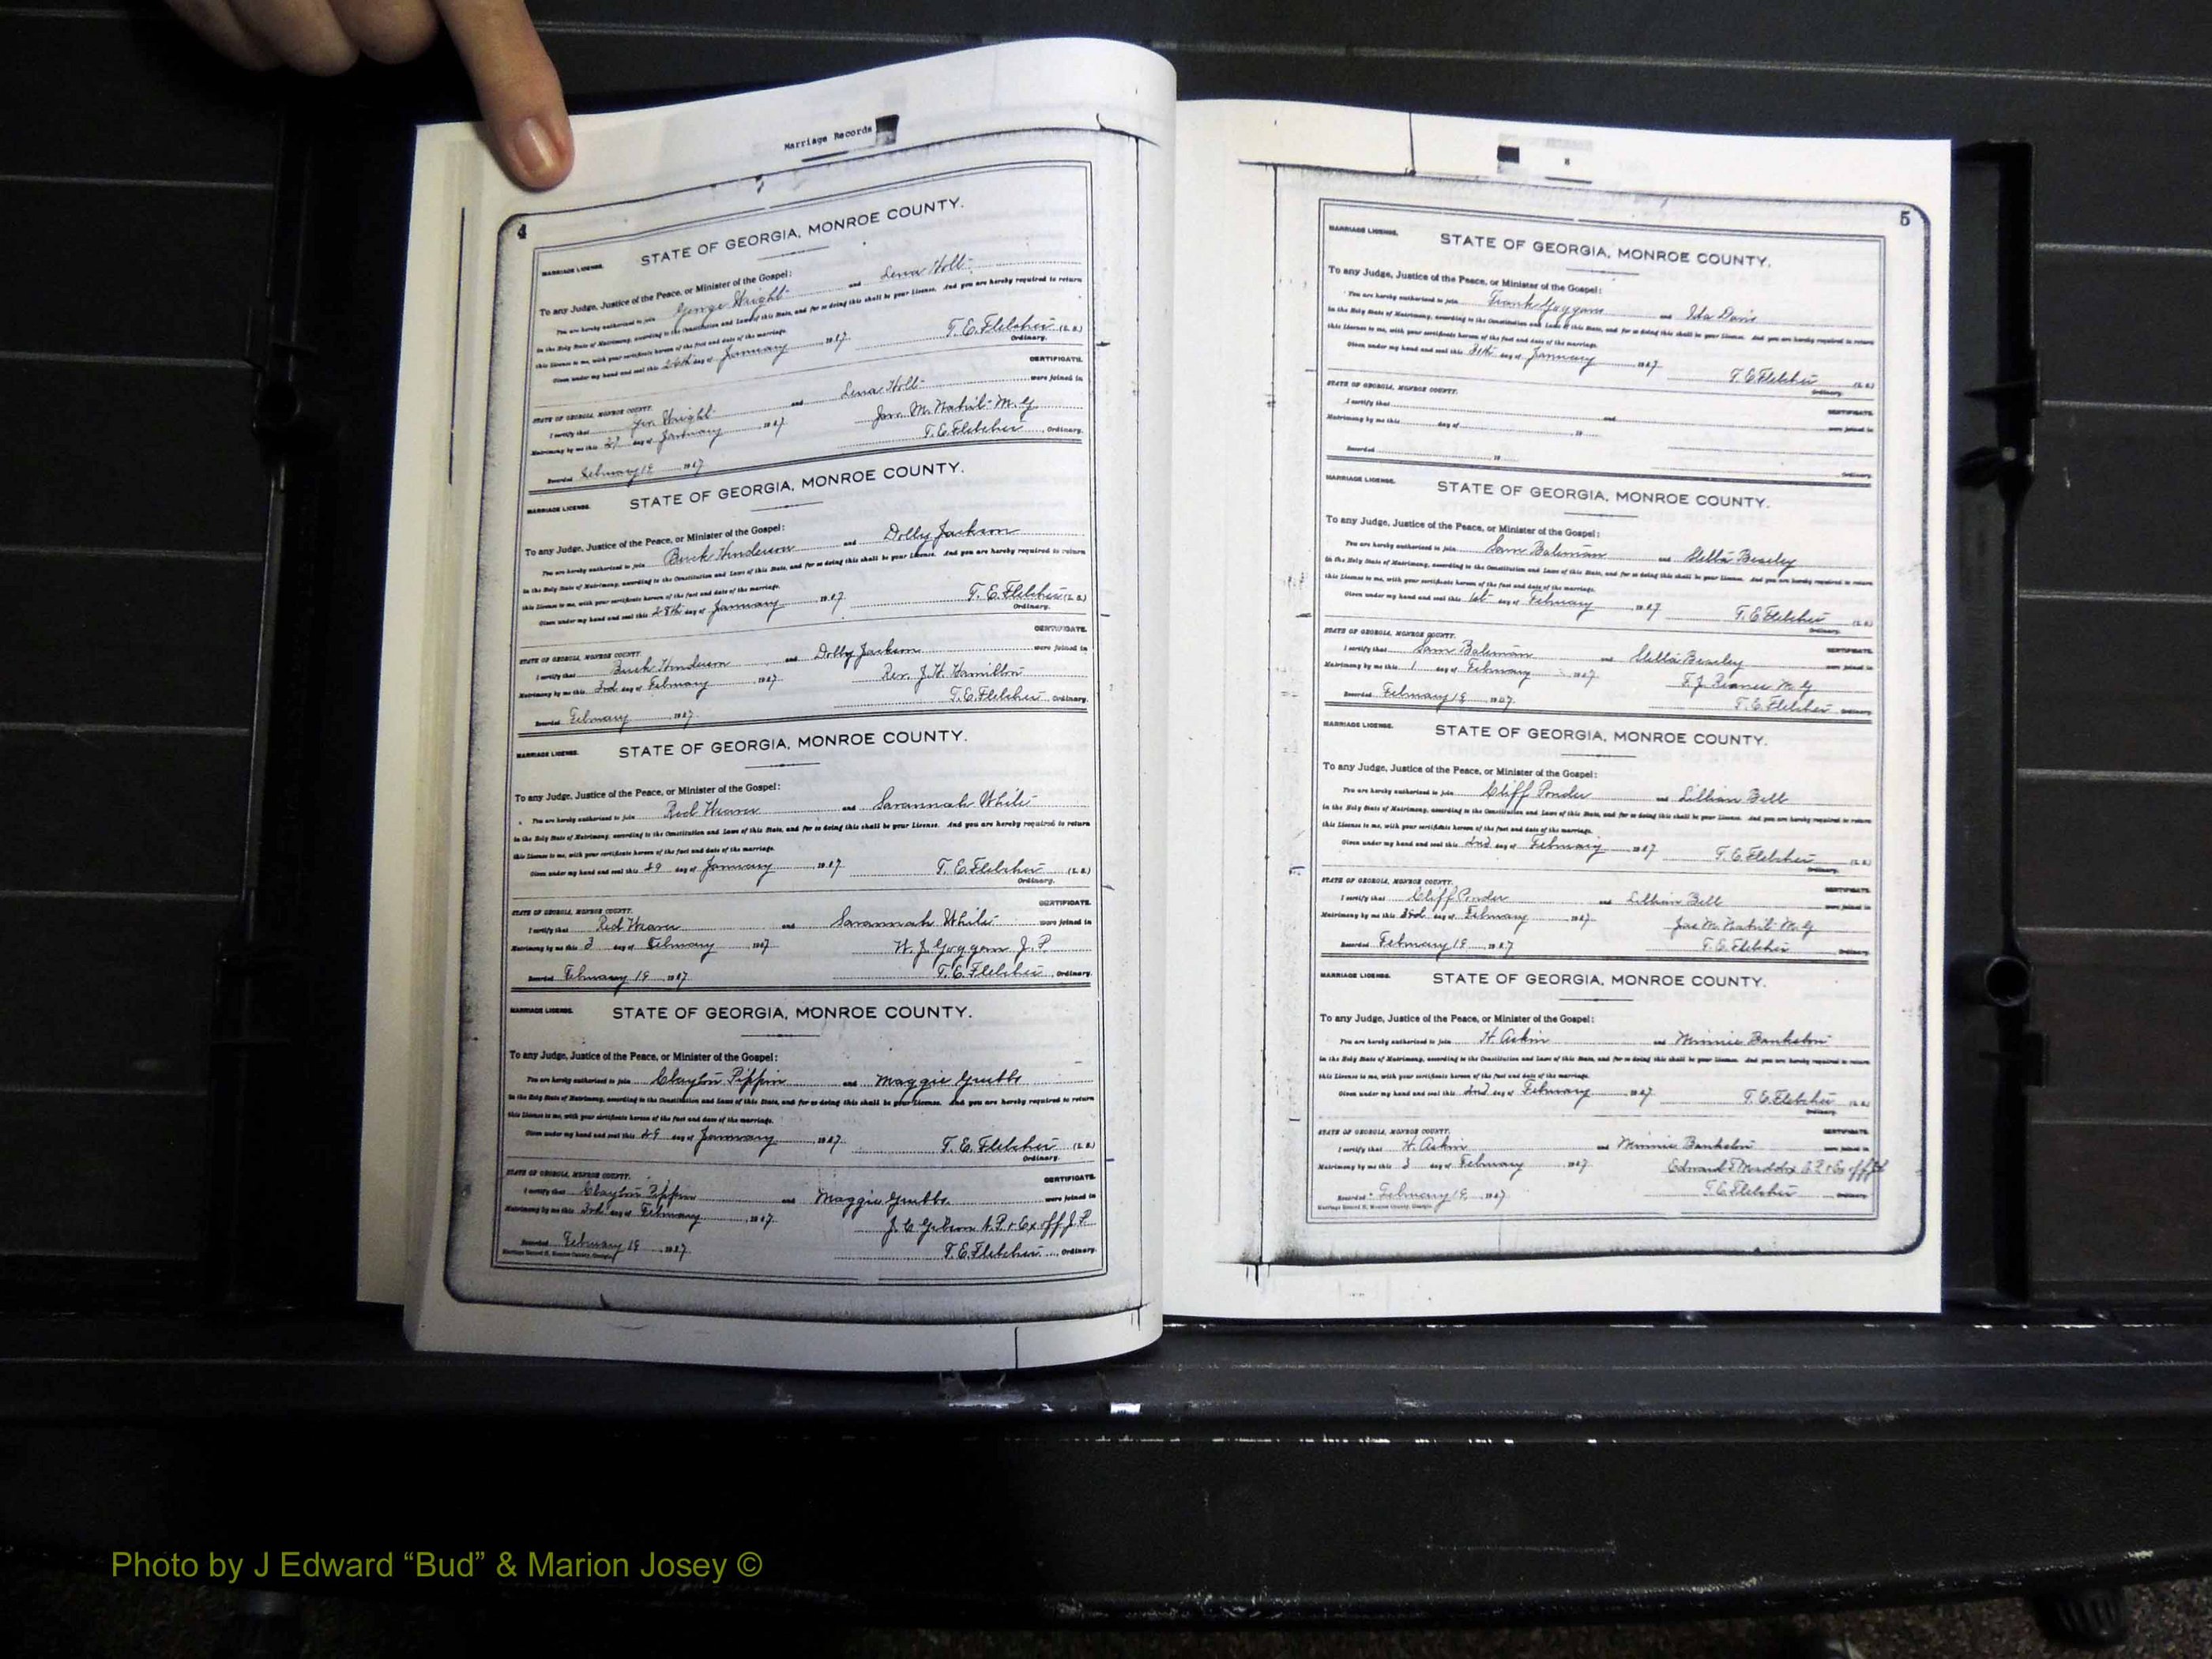 Marriage Records
4
MARRIAGE LICENSE.
STATE OF GEORGIA, MONROE COUNTY.
To any Judge, Justice of the Peace, or Minister of the Gospel:
You are hereby authorized to join George Wright and Lena Holt
in the Holy State of Matrimony, according to the Constitution and Laws of this State, and for so doing this shall be your License. And you are hereby required to return
this License to me, with your certificate hereon of the fact and date of the marriage.
Given under my hand and seal this 26th day of January 1907. T. E. Fletcher (L. S.)
Ordinary.
CERTIFICATE.
STATE OF GEORGIA, MONROE COUNTY.
I certify that Geo Wright and Lena Holt were joined in
Matrimony by me this 27 day of January, 1907 Jas. M. M.G
Recorded February 19 1907 T. E. Fletcher, Ordinary.
MARRIAGE LICENSE.
STATE OF GEORGIA, MONROE COUNTY.
To any Judge, Justice of the Peace, or Minister of the Gospel:
You are hereby authorized to join Buck Henderson and Dolly Jackson
in the Holy State of Matrimony, according to the Constitution and Laws of this State, and for so doing this shall be your License. And you are hereby required to return
this License to me, with your certificate hereon of the fact and date of the marriage.
Given under my hand and seal this 28th day of January 1907. T. E. Fletcher (L. S.)
Ordinary.
CERTIFICATE.
STATE OF GEORGIA, MONROE COUNTY.
I certify that Buck Henderson and Dolly Jackson were joined in
Matrimony by me this 3rd day of February, 1907 Rev. J. H. Hamilton
Recorded February 1907. T. E. Fletcher, Ordinary.
MARRIAGE LICENSE.
STATE OF GEORGIA, MONROE COUNTY.
To any Judge, Justice of the Peace, or Minister of the Gospel:
You are hereby authorized to join Red Weaver and Savannah White
in the Holy State of Matrimony, according to the Constitution and Laws of this State, and for so doing this shall be your License. And you are hereby required to return
this License to me, with your certificate hereon of the fact and date of the marriage.
Given under my hand and seal this 29 day of January 1907. T. E. Fletcher (L. S.)
Ordinary.
CERTIFICATE.
STATE OF GEORGIA, MONROE COUNTY.
I certify that Red Weaver and Savannah White were joined in
Matrimony by me this 3 day of February, 1907 W. J. Goggans J. P.
Recorded February 19 1907. T. E. Fletcher, Ordinary.
MARRIAGE LICENSE.
STATE OF GEORGIA, MONROE COUNTY.
To any Judge, Justice of the Peace, or Minister of the Gospel:
You are hereby authorized to join Clayton Pippin and Maggie Grubbs
in the Holy State of Matrimony, according to the Constitution and Laws of this State, and for so doing this shall be your License. And you are hereby required to return
this License to me, with your certificate hereon of the fact and date of the marriage.
Given under my hand and seal this 29 day of January 1907. T. E. Fletcher (L. S.)
Ordinary.
CERTIFICATE.
STATE OF GEORGIA, MONROE COUNTY.
I certify that Clayton Pippin and Maggie Grubbs were joined in
Matrimony by me this 3rd day of February, 1907. J. C. N.P. & Ex off J. P.
Recorded February 19 1907. T. E. Fletcher, Ordinary.
Marriage Record H, Monroe County, Georgia
5
MARRIAGE LICENSE.
STATE OF GEORGIA, MONROE COUNTY.
To any Judge, Justice of the Peace, or Minister of the Gospel:
You are hereby authorized to join Frank Goggans and Ida Davis
in the Holy State of Matrimony, according to the Constitution and Laws of this State, and for so doing this shall be your License. And you are hereby required to return
this License to me, with your certificate hereon of the fact and date of the marriage.
Given under my hand and seal this day of January 1907. T. E. Fletcher (L. S.)
Ordinary.
STATE OF GEORGIA, MONROE COUNTY.
CERTIFICATE.
I certify that and were joined in
Matrimony by me this day of , 19
Recorded 19 Ordinary.
MARRIAGE LICENSE.
STATE OF GEORGIA, MONROE COUNTY.
To any Judge, Justice of the Peace, or Minister of the Gospel:
You are hereby authorized to join Sam Bateman and Stella Beasley
in the Holy State of Matrimony, according to the Constitution and Laws of this State, and for so doing this shall be your License. And you are hereby required to return
this License to me, with your certificate hereon of the fact and date of the marriage.
Given under my hand and seal this 1st day of February, 1907 T. E. Fletcher (L. S.)
Ordinary.
STATE OF GEORGIA, MONROE COUNTY.
CERTIFICATE.
I certify that Sam Bateman and Stella Beasley were joined in
Matrimony by me this 1 day of February, 1907 F. J. M. G
Recorded February 19, 1907. T. E. Fletcher, Ordinary.
MARRIAGE LICENSE.
STATE OF GEORGIA, MONROE COUNTY.
To any Judge, Justice of the Peace, or Minister of the Gospel:
You are hereby authorized to join Cliff Ponder and Lillian Bell
in the Holy State of Matrimony, according to the Constitution and Laws of this State, and for so doing this shall be your License. And you are hereby required to return
this License to me, with your certificate hereon of the fact and date of the marriage.
Given under my hand and seal this 2nd day of February, 1907 T. E. Fletcher (L. S.)
Ordinary.
STATE OF GEORGIA, MONROE COUNTY.
CERTIFICATE.
I certify that Cliff Ponder and Lillian Bell were joined in
Matrimony by me this 3rd day of February, 1907. Jas M. M. G
Recorded February 19, 1907 T. E. Fletcher, Ordinary.
MARRIAGE LICENSE.
STATE OF GEORGIA, MONROE COUNTY.
To any Judge, Justice of the Peace, or Minister of the Gospel:
You are hereby authorized to join H. Askin and Minnie Bankston
in the Holy State of Matrimony, according to the Constitution and Laws of this State, and for so doing this shall be your License. And you are hereby required to return
this License to me, with your certificate hereon of the fact and date of the marriage.
Given under my hand and seal this 2nd day of February, 1907 T. E. Fletcher (L. S.)
Ordinary.
STATE OF GEORGIA, MONROE COUNTY.
CERTIFICATE.
I certify that H. Askin and Minnie Bankston were joined in
Matrimony by me this 3 day of February, 1907. Edward T Maddox
Recorded February 19, 1907 T. E. Fletcher, Ordinary.
Marriage Record H, Monroe County, Georgia
Photo by J Edward “Bud” & Marion Josey ©